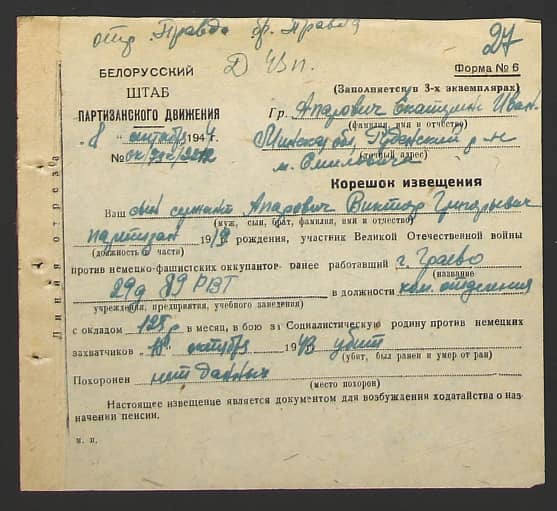 отр. Правда бр. Правда
27
Д 43п.
БЕЛОРУССКИЙ
ШТАБ
ПАРТИЗАНСКОГО ДВИЖЕНИЯ
"8" октября 1944 г.
№
Форма № 6
(Заполняется в 3-х экземплярах)
Гр. Апарович Екатерин Иван
(фамилия, имя и отчество)
Минская обл, Руденский р-н
(точный адрес)
м. Смиловичи
Корешок извещения
Ваш сын сержант Апарович Виктор Григорьевич
(муж, сын, брат, фамилия, имя и отчество)
партизан 1919 рождения, участник Великой Отечественной войны
(должность в части)
против немецко-фашистских оккупантов ранее работавший г. Граево
(название
29д 89 РВТ в должности ком. отделения
учреждения, предприятия, учебного заведения)
с окладом 125р в месяц, в бою за Социалистическую родину против немецких
захватчиков "18" октября 1943 убит
(убит, был ранен и умер от ран)
Похоронен нет данных
(место похорон)
Настоящее извещение является документом для возбуждения ходатайства о наз-
начении пенсии.
м. п.
Линия отреза